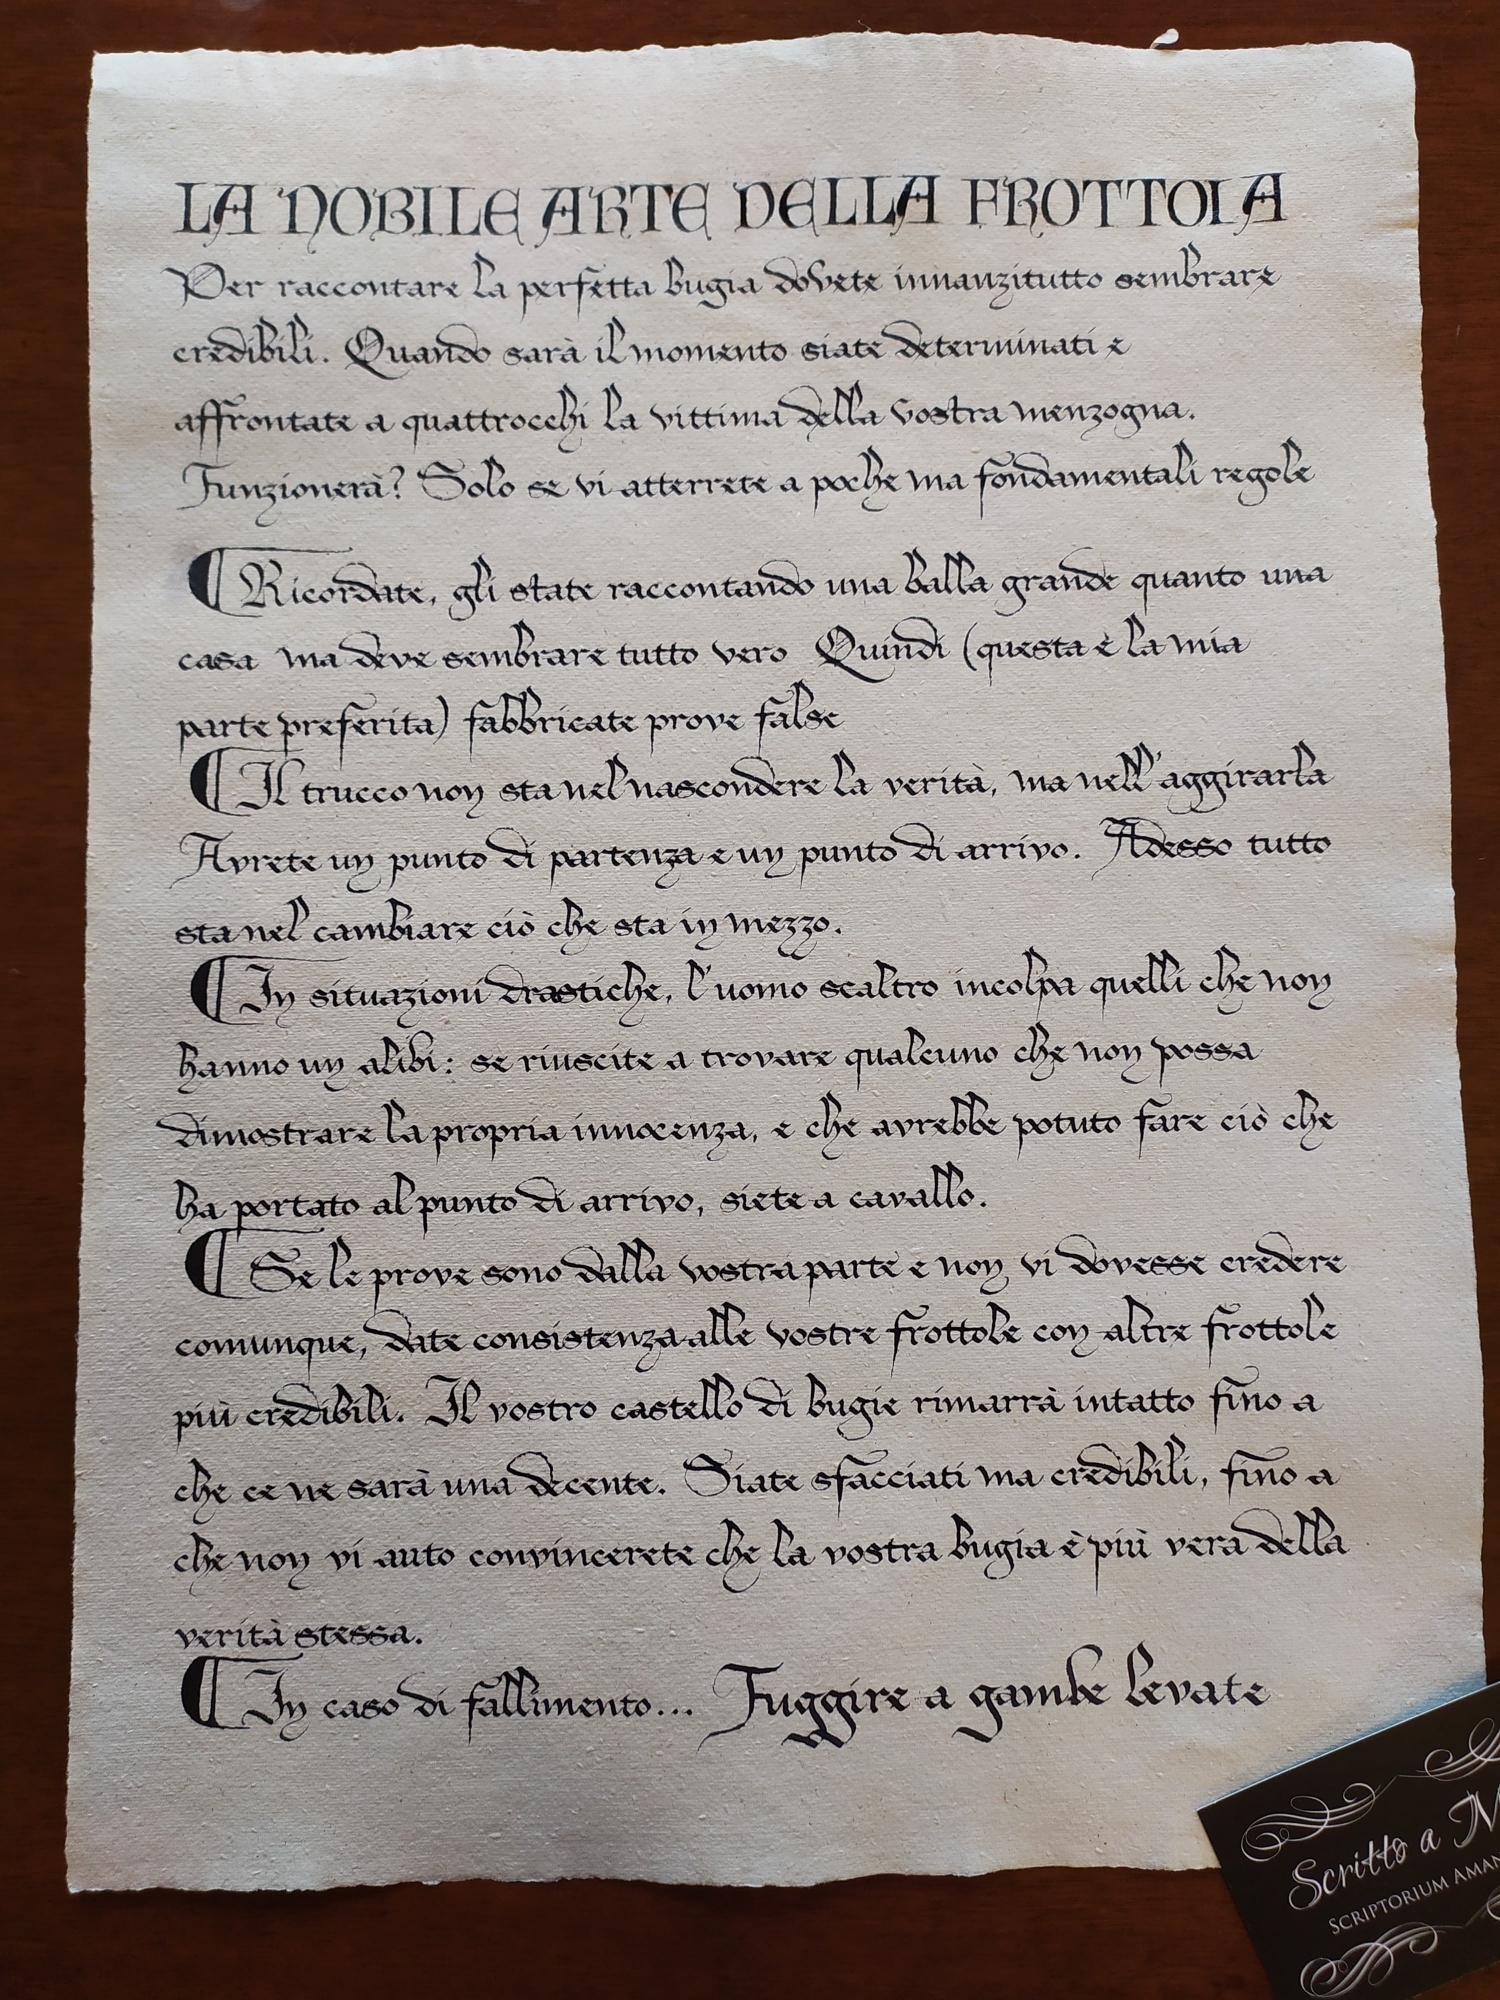 LA NOBILE ARTE DELLA FROTTOIA
Per raccontare la perfetta bugia dovete innanzitutto sembrare
credibili. Quando sarà il momento siate determinati e
affrontate a quattrocchi la vittima della vostra menzogna.
Funzionerà? Solo se vi atterrete a poche ma fondamentali regole
¶ Ricordate, gli state raccontando una balla grande quanto una
casa ma deve sembrare tutto vero Quindi (questa è la mia
parte preferita) fabbricate prove false
¶ Il trucco non sta nel nascondere la verità, ma nell'aggirarla
Avrete un punto di partenza e un punto di arrivo. Adesso tutto
sta nel cambiare ciò che sta in mezzo.
¶ In situazioni drastiche, l'uomo scaltro incolpa quelli che non
hanno un alibi: se riuscite a trovare qualcuno che non possa
dimostrare la propria innocenza, e che avrebbe potuto fare ciò che
ha portato al punto di arrivo, siete a cavallo.
¶ Se le prove sono dalla vostra parte e non vi dovesse credere
comunque, date consistenza alle vostre frottole con altre frottole
più credibili. Il vostro castello di bugie rimarrà intatto fino a
che ce ne sarà una decente. Siate sfacciati ma credibili, fino a
che non vi auto convincerete che la vostra bugia è più vera della
verità stessa.
¶ In caso di fallimento... Fuggire a gambe levate
Scritto a M
SCRIPTORIUM AMAN